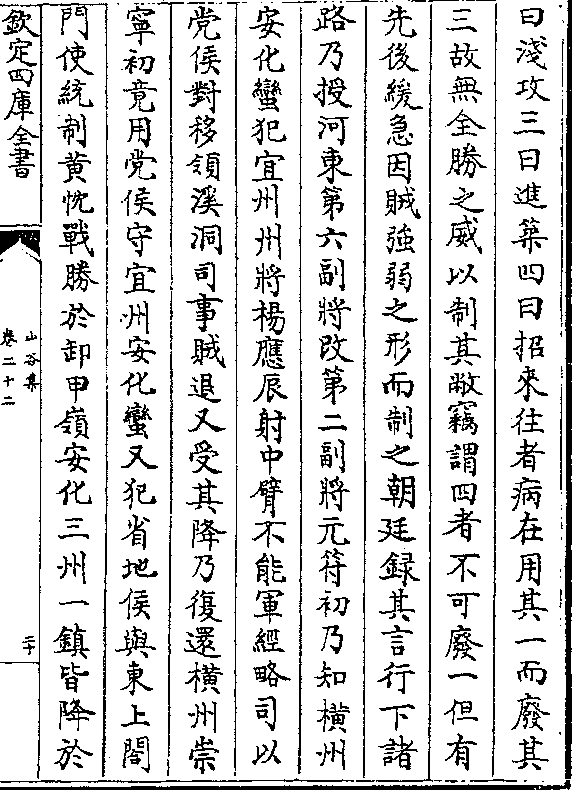 曰淺攻三曰進築四曰招來往者病在用其一而廢其
三故無全勝之威以制其敝竊謂四者不可廢一但有
先後緩急因賊強弱之形而制之朝廷録其言行下諸
路乃授河東第六副將改第二副將元符初乃知横州
安化蠻犯宜州州將楊應辰射中臂不能軍經略司以
党侯對移領溪洞司事賊退又受其降乃復還横州崇
寧初竟用党侯守宜州安化蠻又犯省地侯與東上閤
門使統制黄忱戰勝於卸甲嶺安化三州一鎮皆降於
欽定四庫全書
山谷集
卷二十二
二十